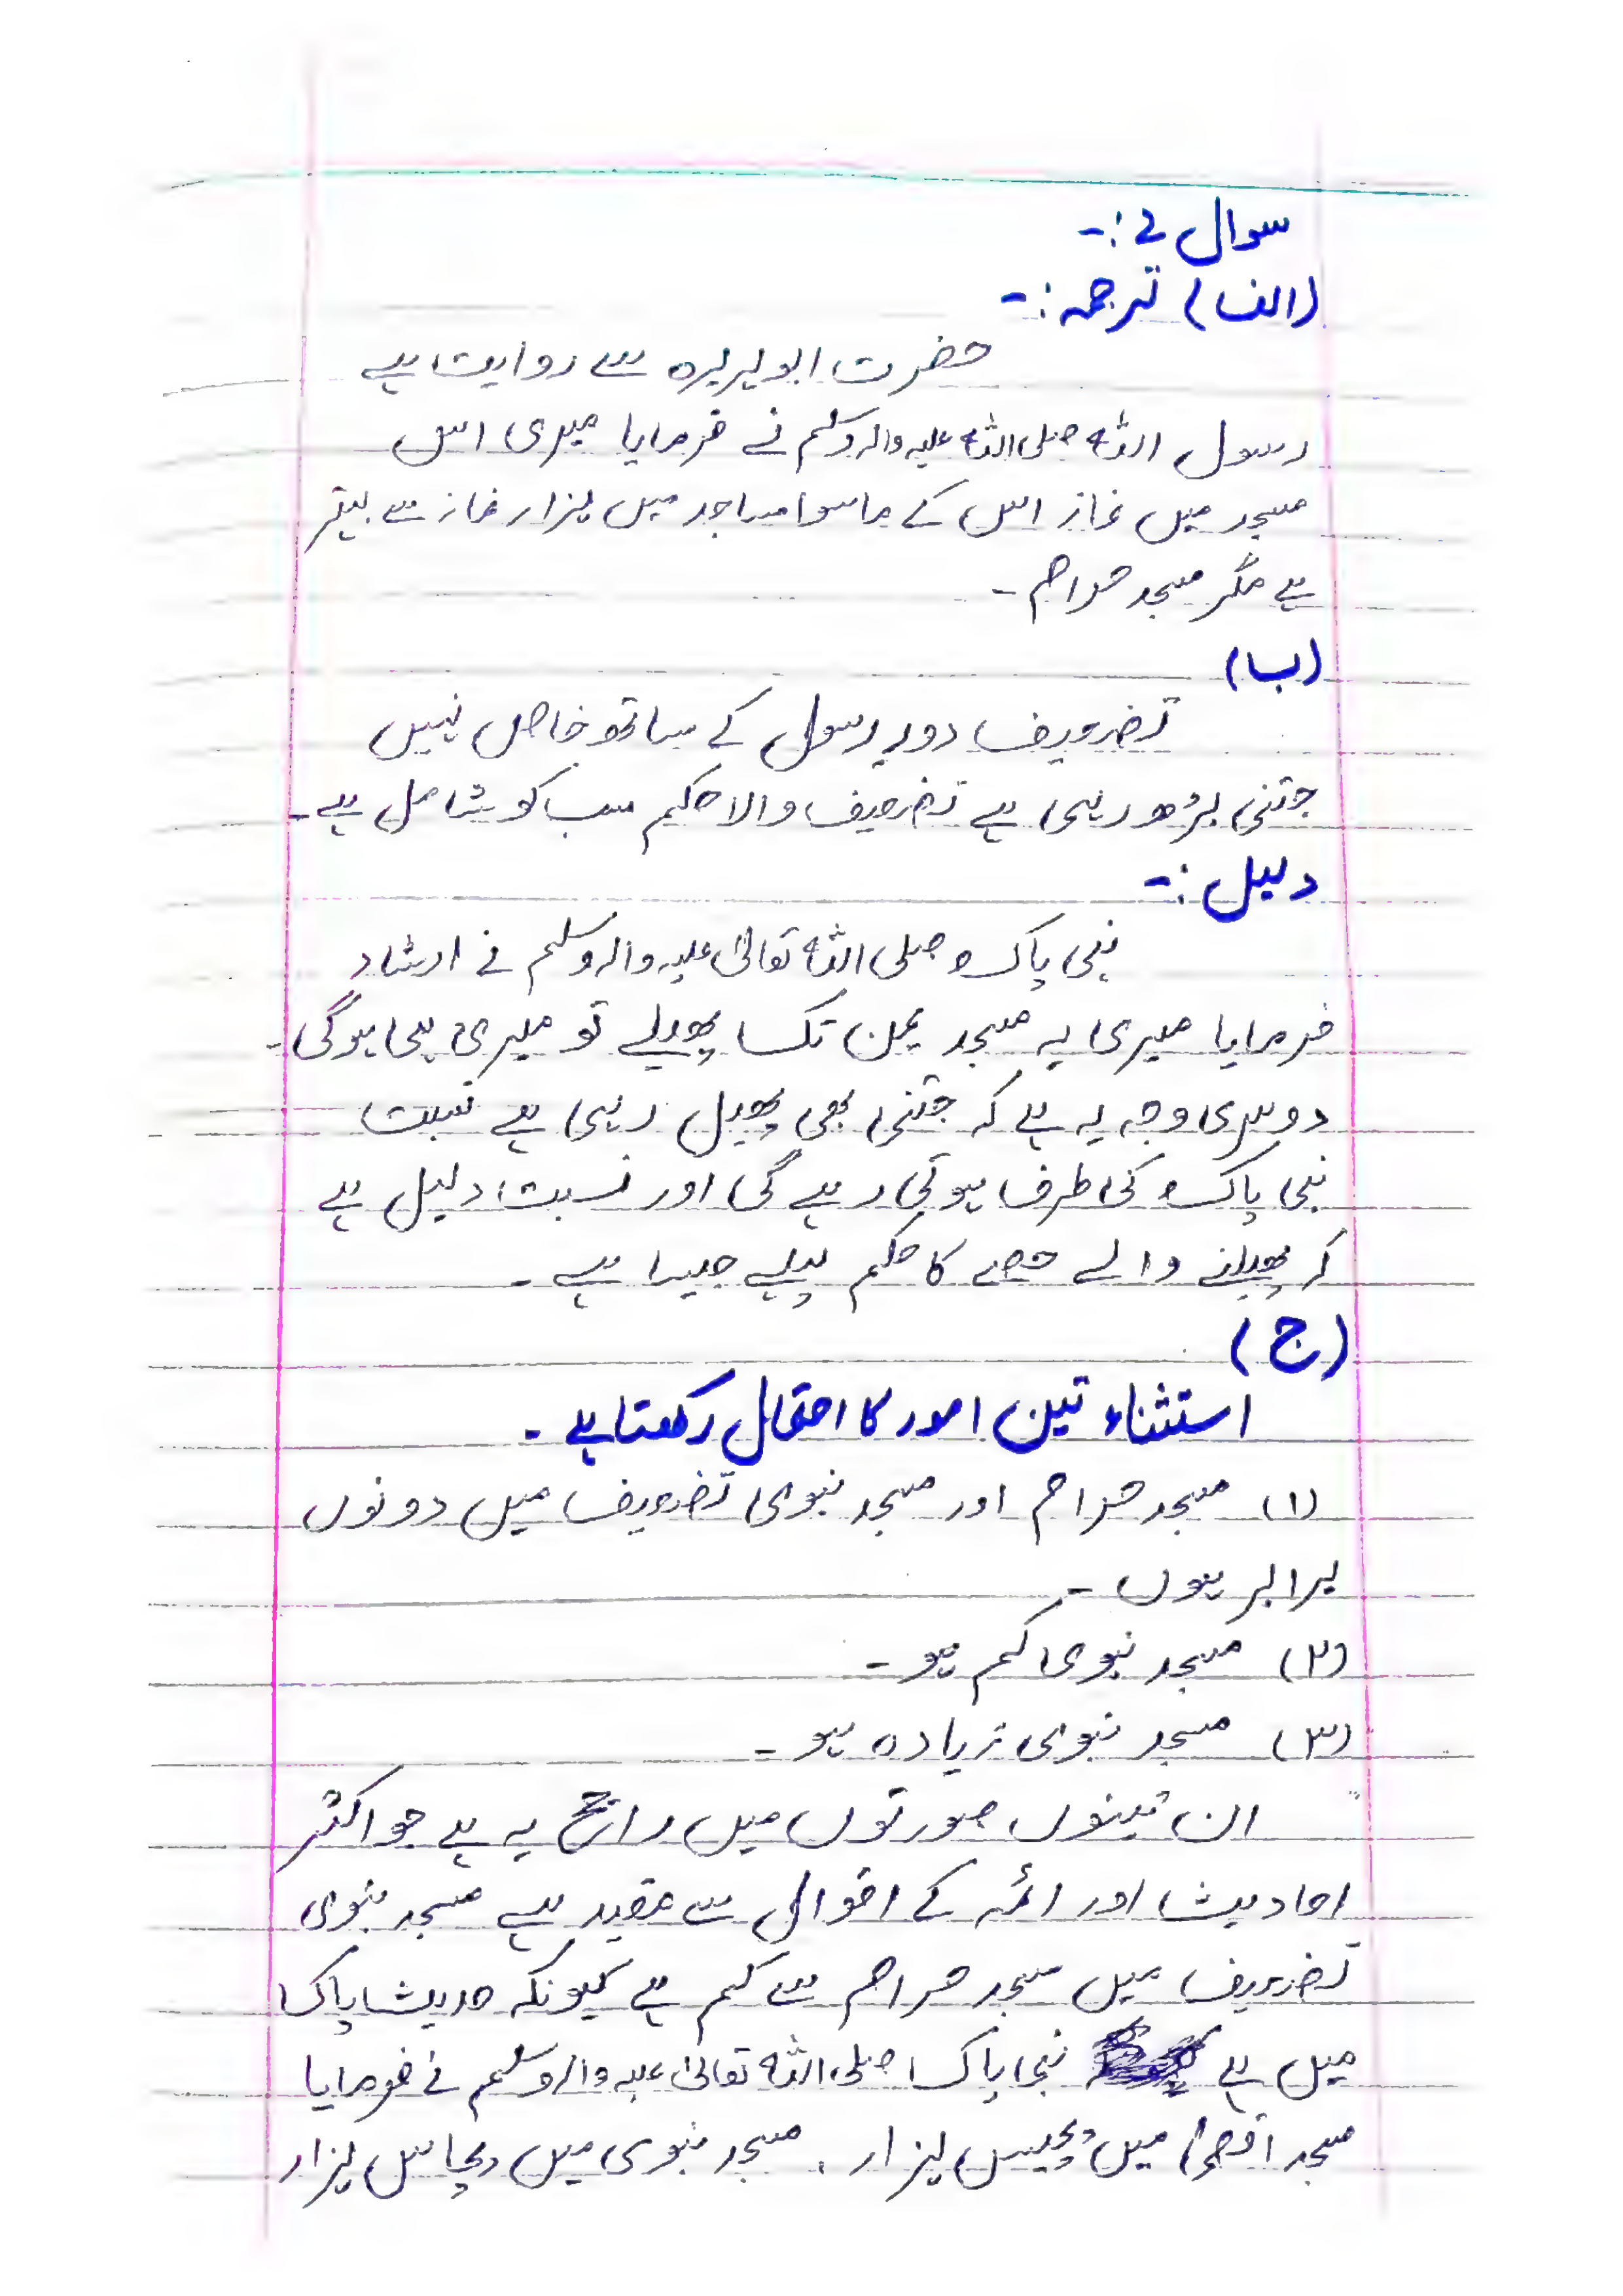 سوال ۲ :-
(الف) ترجمہ :-
حضرت ابو ہریرہ سے روایت ہے
رسول اللہ صلی اللہ علیہ والہ وسلم نے فرمایا میری اس
مسجد میں نماز اس کے ماسوا مساجد میں ہزار نماز سے بہتر
ہے مگر مسجد حرام -
(ب)
تضعیف دور رسول کے ساتھ خاص نہیں
جتنی بڑھ رہی ہے تضعیف والا حکم سب کو شامل ہے -
دلیل :-
نبی پاک صلی اللہ تعالیٰ علیہ والہ وسلم نے ارشاد
فرمایا میری یہ مسجد یمن تک پھیلے تو میری ہی ہوگی -
دوسری وجہ یہ ہے کہ جتنی بھی پھیل رہی ہے نسبت
نبی پاک کی طرف ہوتی رہے گی اور نسبت دلیل ہے
کہ پھیلنے والے حصے کا حکم پہلے جیسا ہے -
(ج)
استثناء تین امور کا احتمال رکھتا ہے -
(۱) مسجد حرام اور مسجد نبوی تضعیف میں دونوں
برابر ہوں -
(۲) مسجد نبوی کم ہو -
(۳) مسجد نبوی زیادہ ہو -
ان تینوں صورتوں میں راجح یہ ہے جو اکثر
احادیث اور ائمہ کے اقوال سے مقید ہے مسجد نبوی
تضعیف میں مسجد حرام سے کم ہے کیونکہ حدیث پاک
میں ہے نبی پاک صلی اللہ تعالیٰ علیہ والہ وسلم نے فرمایا
مسجد اقصیٰ میں پچیس ہزار ، مسجد نبوی میں پچاس ہزار